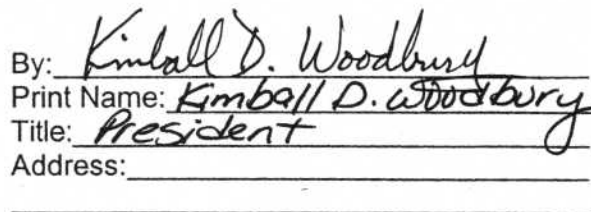 By: Kimball D. Woodbury
Print Name: Kimball D. Woodbury
Title: President
Address: